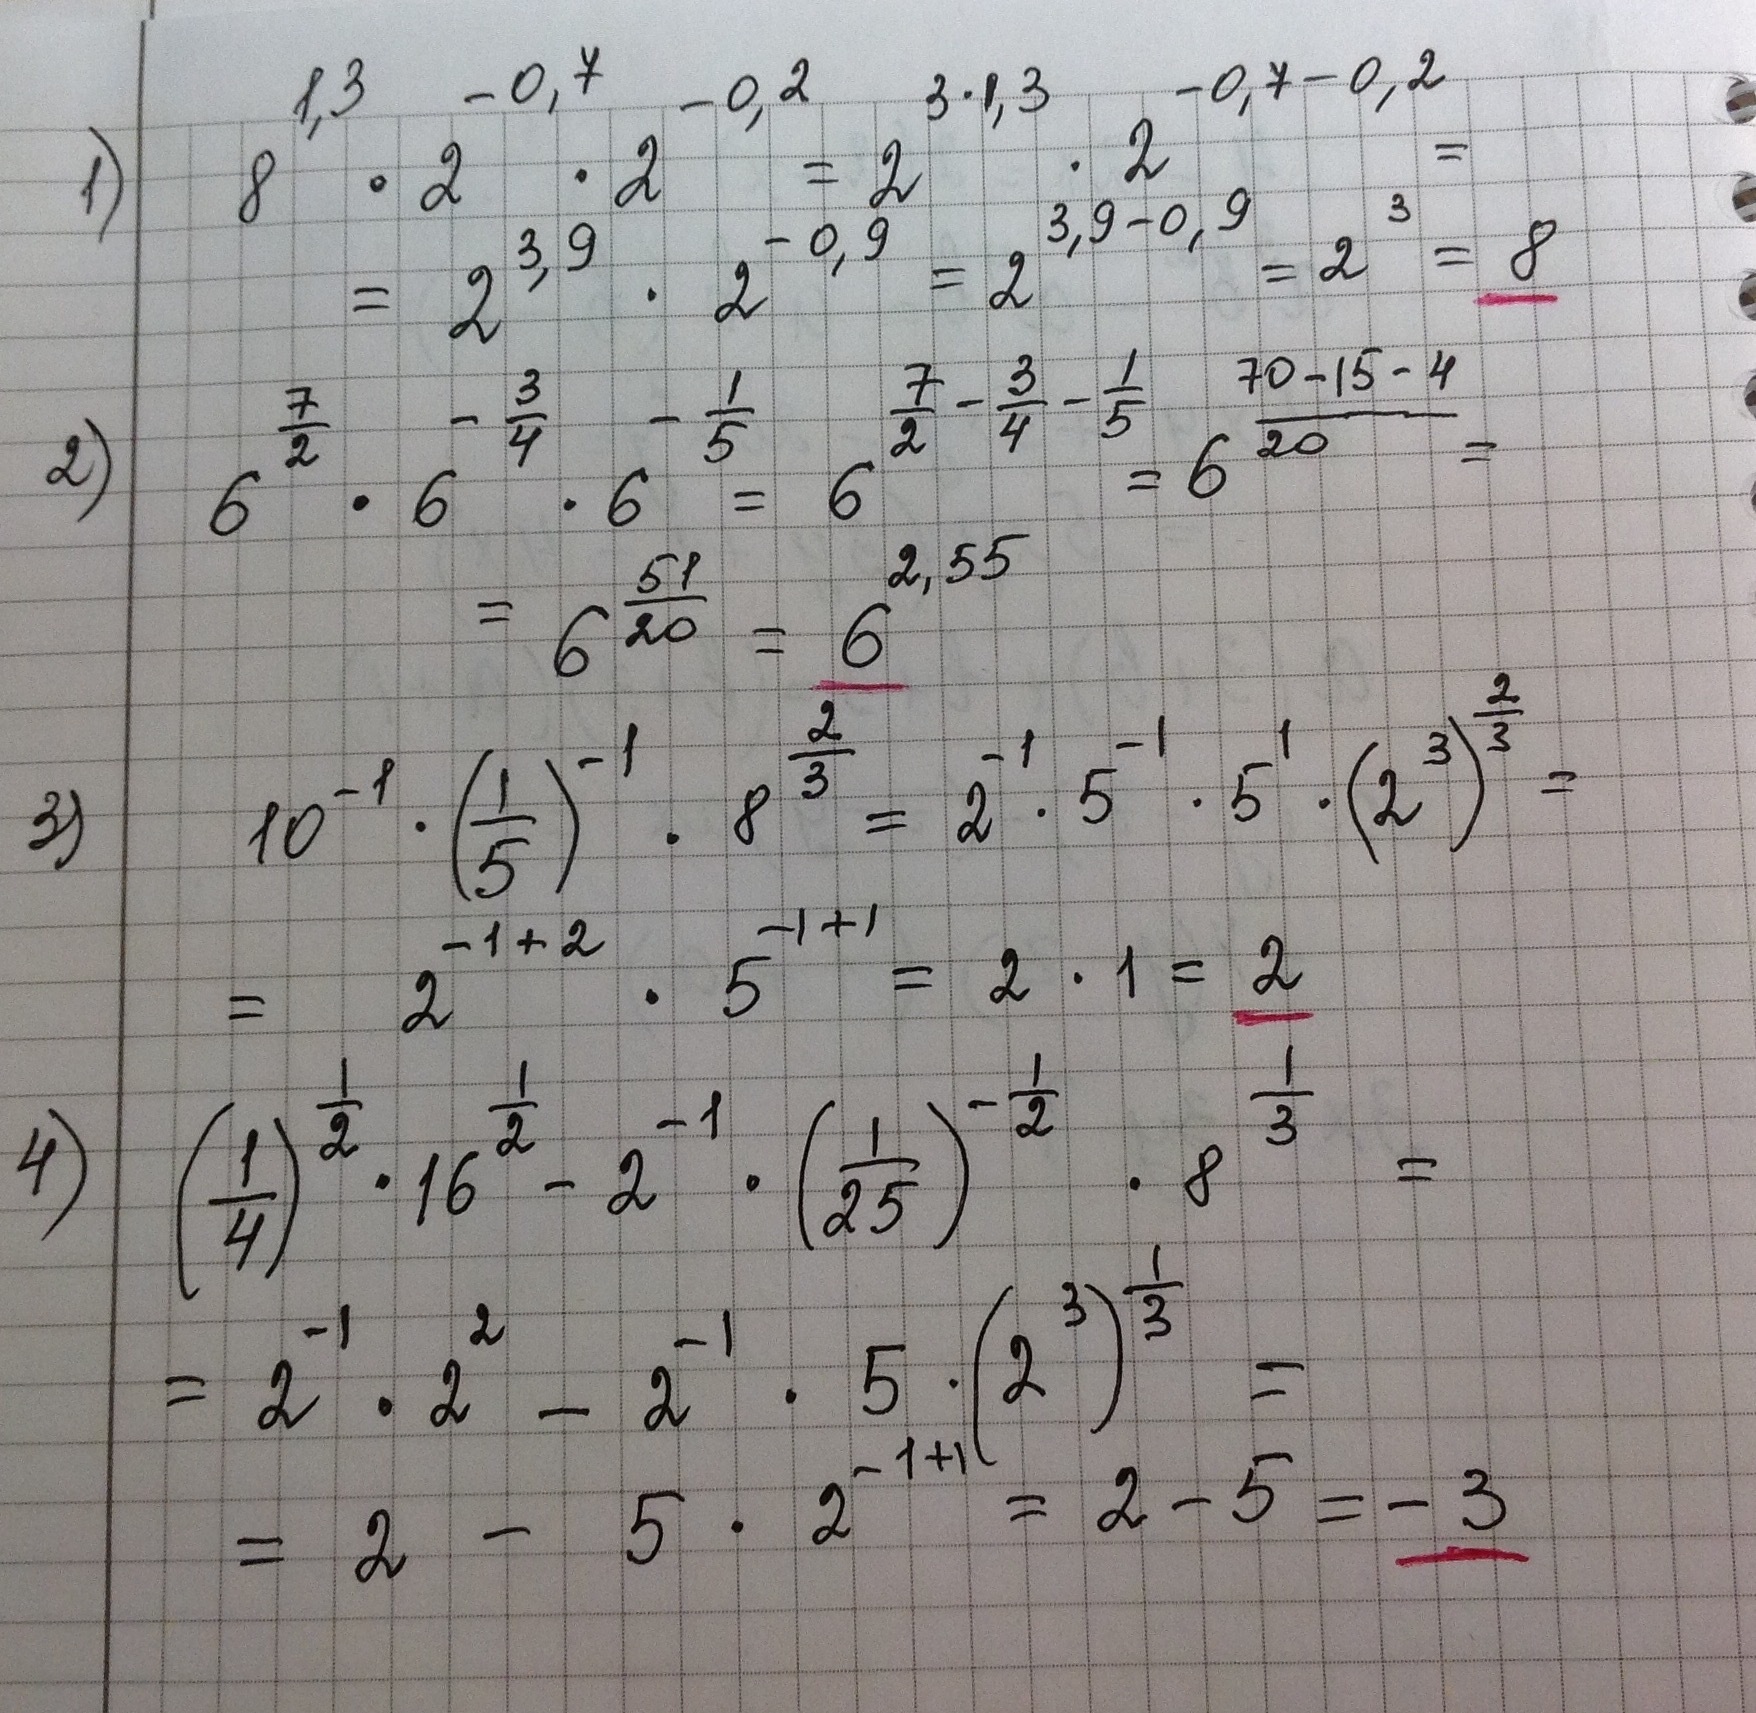 1) 8^{1,3} · 2^{-0,7} · 2^{-0,2} = 2^{3·1,3} · 2^{-0,7-0,2} =
= 2^{3,9} · 2^{-0,9} = 2^{3,9-0,9} = 2^3 = 8
2) 6^{7/2} · 6^{-3/4} · 6^{-1/5} = 6^{7/2 - 3/4 - 1/5} = 6^{(70-15-4)/20} =
= 6^{51/20} = 6^{2,55}
3) 10^{-1} · (1/5)^{-1} · 8^{2/3} = 2^{-1} · 5^{-1} · 5^1 · (2^3)^{2/3} =
= 2^{-1+2} · 5^{-1+1} = 2 · 1 = 2
4) (1/4)^{1/2} · 16^{1/2} - 2^{-1} · (1/25)^{-1/2} · 8^{1/3} =
= 2^{-1} · 2^2 - 2^{-1} · 5 · (2^3)^{1/3} =
= 2 - 5 · 2^{-1+1} = 2 - 5 = -3